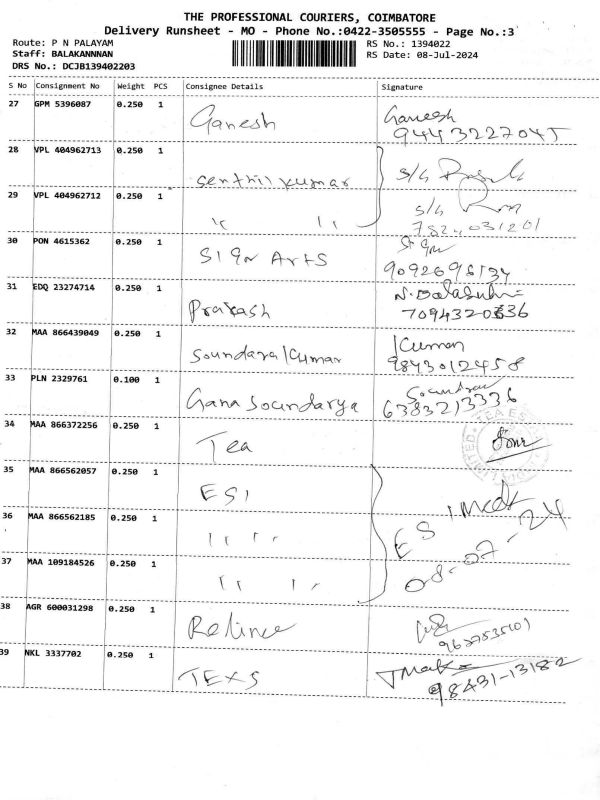 THE PROFESSIONAL COURIERS, COIMBATORE
Delivery Runsheet - MO - Phone No.:0422-3505555 - Page No.:3
Route: P N PALAYAM RS No.: 1394022
Staff: BALAKANNNAN RS Date: 08-Jul-2024
DRS No.: DCJB139402203
S No Consignment No Weight PCS Consignee Details Signature
27 GPM 5396087 0.250 1 Ganesh Ganesh
9443227045
28 VPL 404962713 0.250 1 Senthil kumar S/G
29 VPL 404962712 0.250 1 " " S/G
30 PON 4615362 0.250 1 SIGN ArtS
9092696134
31 EDQ 23274714 0.250 1 Prakash
32 MAA 866439049 0.250 1 Soundara Kumar Kumar
9843012458
33 PLN 2329761 0.100 1 Gana Soundarya
6383213336
34 MAA 866372256 0.250 1 Tea
35 MAA 866562057 0.250 1 ESI
36 MAA 866562185 0.250 1 " " ESI
37 MAA 109184526 0.250 1 " " 08-07-24
38 AGR 600031298 0.250 1 Relince
39 NKL 3337702 0.250 1 TEXS
98431-13182